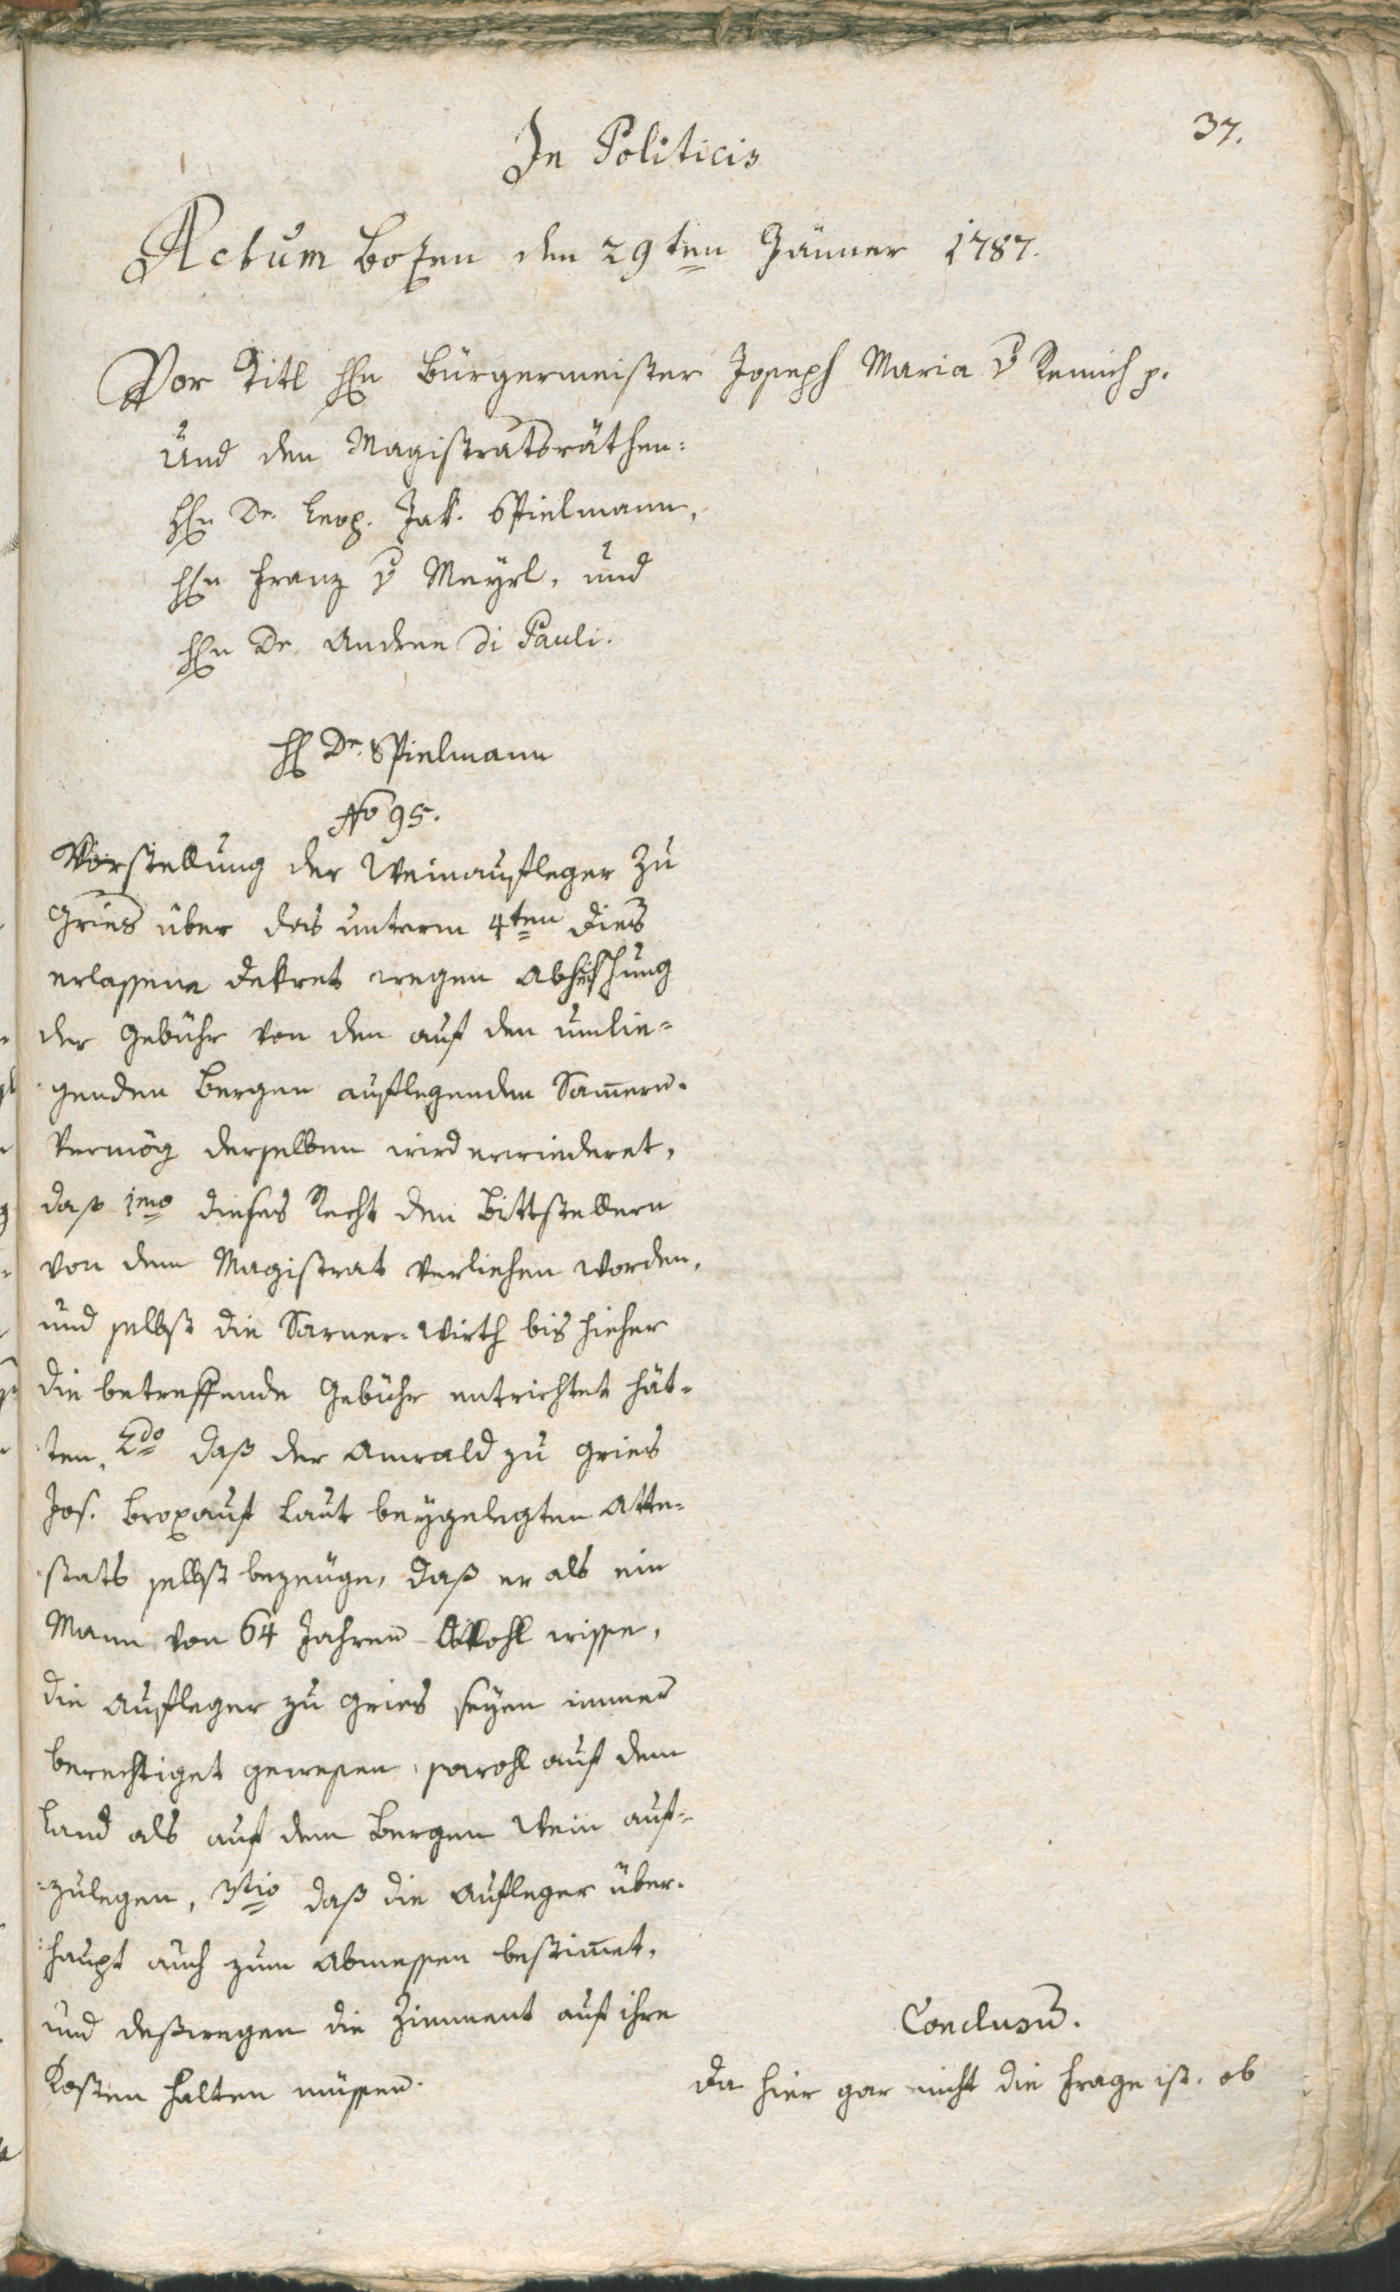 37.
In Politicis
Actum Bozen den 29ten Jänner 1787.
Vor Titl Hn Bürgermeister Joseph Maria v Remich p.
und den Magistratsräthen:
Hn Dr. Leop. Jak. Spielmann,
Hn Franz v Mayrl, und
Hn Dr. Andree Di Pauli.
H Dr. Spielmann
No 95.
Vorstellung der Weinaufleger zu
Gries über das unterm 4ten dies
erlassene Dekret wegen
der Gebühr von den auf den umlie=
genden Bergen auflegenden
Vermög derselben wird erwiederet,
daß 1mo dieses Recht den Bittstellern
von dem Magistrat verliehen worden,
und selbst die Sarner=Wirth bis hieher
die betreffende Gebühr entrichtet hät=
ten, 2do daß der Anwald zu Gries
Jos. laut beygelegten Atte=
stats selbst bezeuge, daß er als ein
Mann von 64 Jahren wohl wisse,
die Aufleger zu Gries seyen immer
berechtiget gewesen, sowohl auf dem
Land als auf dem Bergen Wein auf=
zulegen, 3tio daß die Aufleger über=
haupt auch zum Abmessen bestim̅et,
und deßwegen die Zimment auf ihre
Kosten halten müssen.
Conclusum̅.
Da hier gar nicht die Frage ist, ob